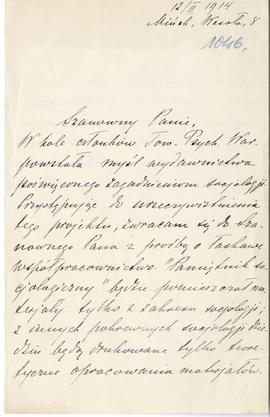 12/II 1914
Mińsk, Wesoła 8
1046.
Szanowny Panie,
W kole członków Tow. Psych. War.
powstała myśl wydawnictwa
poświęconego zagadnieniom socjologji.
Przystępując do urzeczywistnienia
tego projektu, zwracam się do Sza-
nownego Pana z prośbą o łaskawe
współpracownictwo. "Pamiętnik so-
cjologiczny" będzie pomieszczał ma-
terjały tylko z zakresu socjologji;
z innych pokrewnych socjologji dzie-
dzin będą drukowane tylko teore-
tyczne opracowania materjałów.